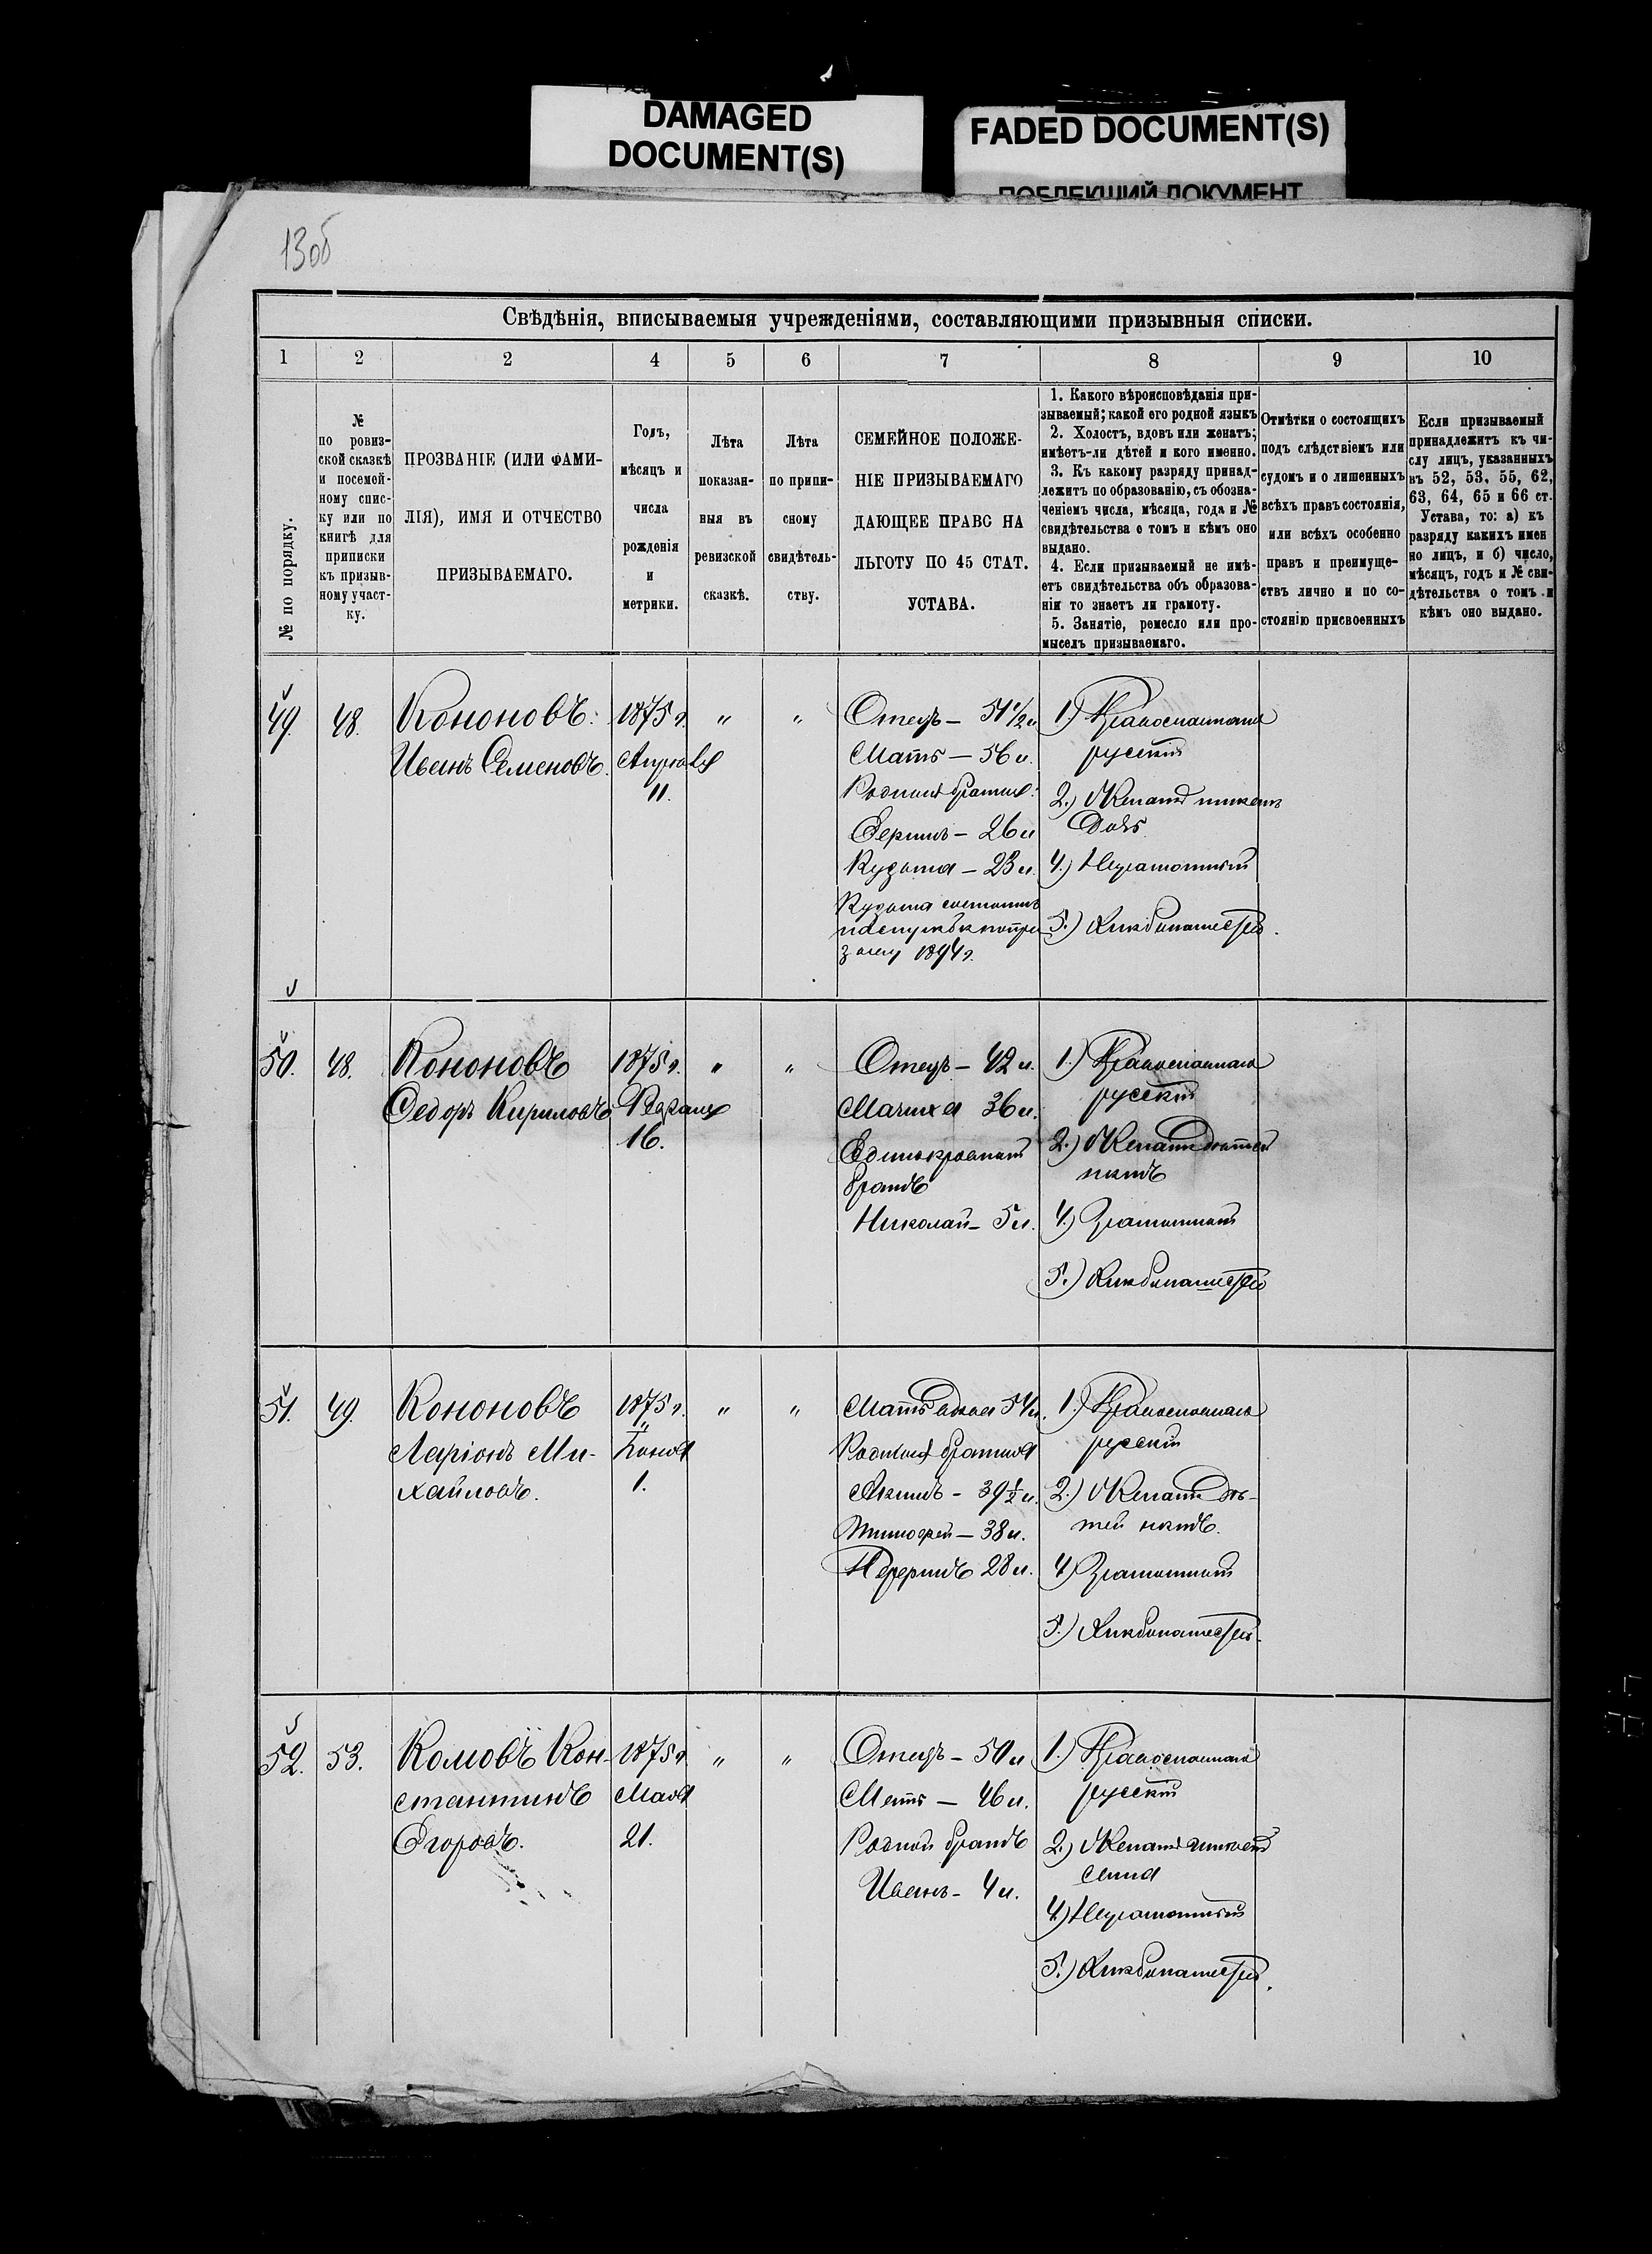 DAMAGED
DOCUMENT(S)
FADED DOCUMENT(S)
ПОБЛЕКШИЙ ДОКУМЕНТ
13об
Свѣдѣнія, вписываемыя учрежденіями, составляющими призывныя списки.
1 2 2 4 5 6 7 8 9 10
№ по порядку.
№
по ровиз-
ской сказкѣ
и посемей-
ному спис-
ку или по
книгѣ для
приписки
къ призыв-
ному участ-
ку.
ПРОЗВАНІЕ (ИЛИ ФАМИ-
ЛІЯ), ИМЯ И ОТЧЕСТВО
ПРИЗЫВАЕМАГО.
Годъ,
мѣсяцъ и
числа
рожденія
и
метрики.
Лѣта
показан-
ныя въ
ревизской
сказкѣ.
Лѣта
по припи-
сному
свидѣтель-
ству.
СЕМЕЙНОЕ ПОЛОЖЕ-
НІЕ ПРИЗЫВАЕМАГО
ДАЮЩЕЕ ПРАВО НА
ЛЬГОТУ ПО 45 СТАТ.
УСТАВА.
1. Какого вѣроисповѣданія при-
зываемый; какой его родной языкъ
2. Холостъ, вдовъ или женатъ;
имѣетъ-ли дѣтей и кого именно.
3. Къ какому разряду принад-
лежитъ по образованію, съ обозна-
ченіемъ числа, мѣсяца, года и №
свидѣтельства о томъ и кѣмъ оно
выдано.
4. Если призываемый не имѣ-
етъ свидѣтельства объ образова-
ніи то знаетъ ли грамоту.
5. Занятіе, ремесло или про-
мыселъ призываемаго.
Отмѣтки о состоящихъ
подъ слѣдствіемъ или
судомъ и о лишенныхъ
всѣхъ правъ состоянія,
или всѣхъ особенно
правъ и преимуще-
ствъ лично и по со-
стоянію присвоенныхъ
Если призываемый
принадлежитъ къ чи-
слу лицъ, указанныхъ
въ 52, 53, 55, 62,
63, 64, 65 и 66 ст.
Устава, то: а) къ
разряду какихъ имен
но лицъ, и б) число,
мѣсяцъ, годъ и № сви-
дѣтельства о томъ и
кѣмъ оно выдано.
49. 48. Кононовъ.
Иванъ Семеновъ.
1875 г.
Апрѣля
11.
" "
Отецъ — 51 1/2 л.
Мать — 56 л.
Родныя братья:
— 26 л
Кузьма — 23 л.
Кузьма состоитъ
зыву 1894 г.
1.) Православнаго
русскій
2.) Женатъ имѣетъ
дочь
4.) Неграмотный
5.) Хлѣбопашецъ.
50. 48. Кононовъ
Федоръ Кириловъ
1875 г.
16.
" "
Отецъ — 42 л.
Мачиха 36 л.
Единокровный
братъ
Николай — 5 л.
1.) Православнаго
русскій
2.) Женатъ дѣтей
нѣтъ
4.) Грамотный
5.) Хлѣбопашецъ
51. 49. Кононовъ
Ларіонъ Ми-
хайловъ.
1875 г.
Іюня
1.
" "
Мать вдова 54 л.
Родныя братья
Акимъ — 39 1/2 л.
Тимофей — 38 л.
28 л.
1.) Православнаго
русскій
2.) Женатъ дѣ-
тей нѣтъ.
4) Грамотный
5.) Хлѣбопашецъ.
52. 53. Комовъ Кон-
стантинъ
Егоровъ.
1875 г.
Мая
21.
" "
Отецъ — 50 л
Мать — 46 л.
Родной братъ
Иванъ — 4 л.
1.) Православнаго
русскій
2.) Женатъ имѣетъ
сына
4.) Неграмотный
5.) Хлѣбопашецъ.